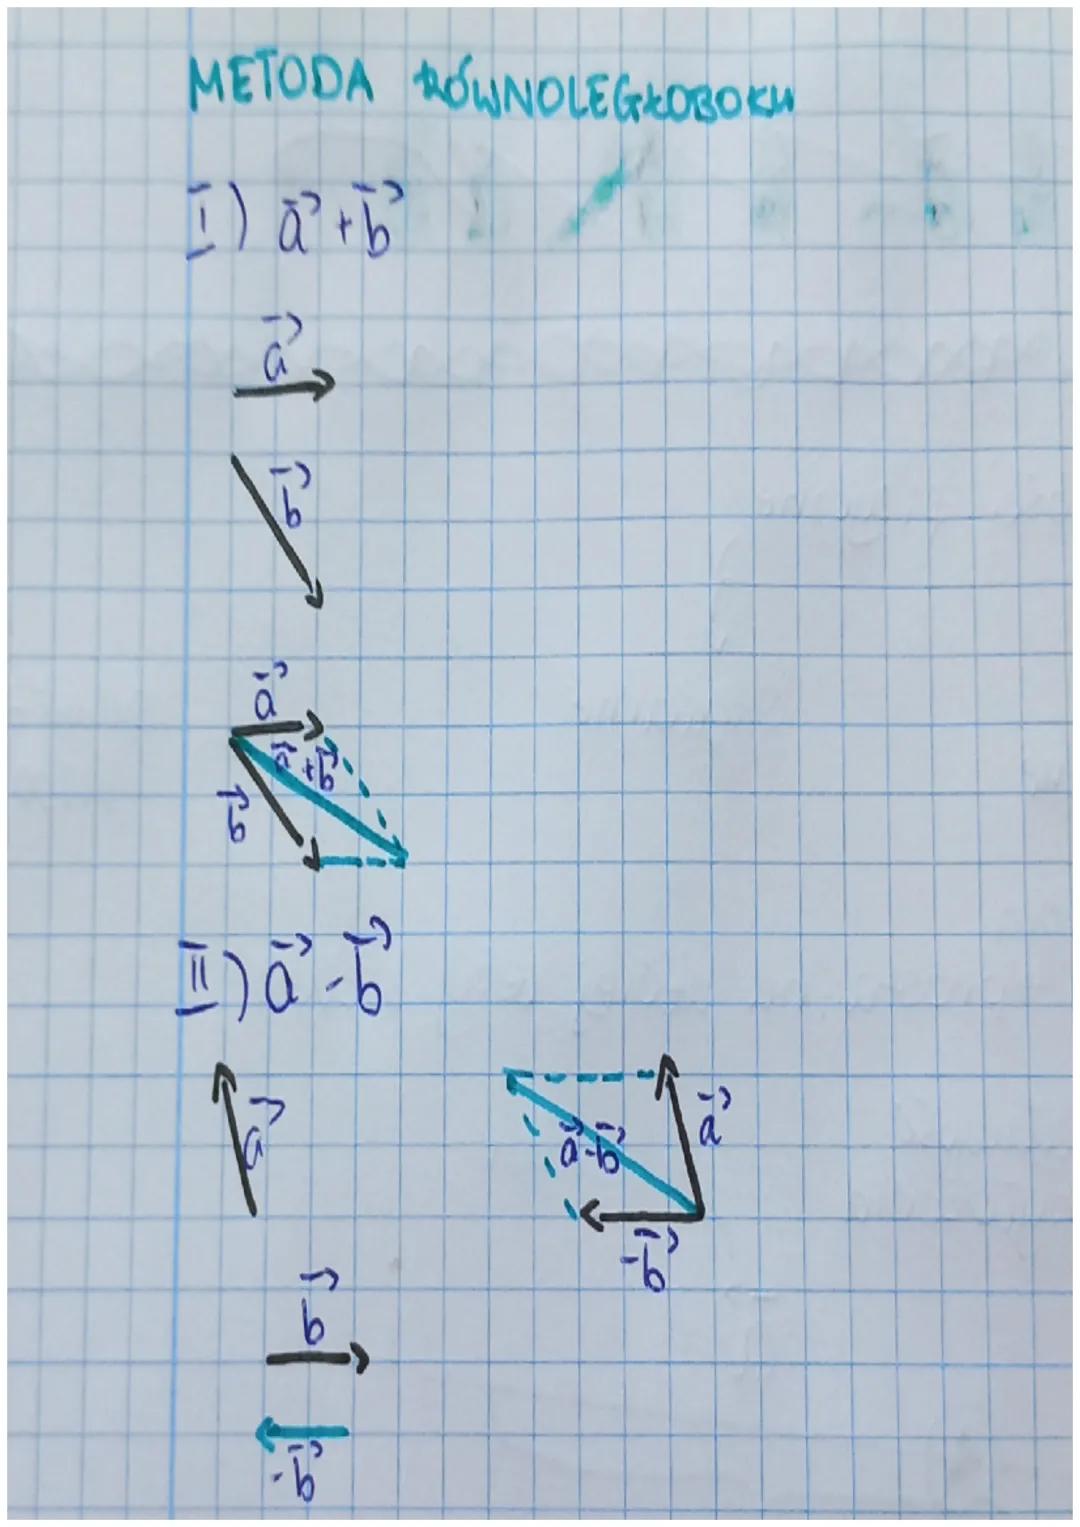 METODA RÓWNOLEGŁOBOKU
I) a⃗ + b⃗
a⃗
b⃗
a⃗
a⃗ + b⃗
b⃗
II) a⃗ - b⃗
a⃗
a⃗
a⃗ - b⃗
-b⃗
b⃗
-b⃗